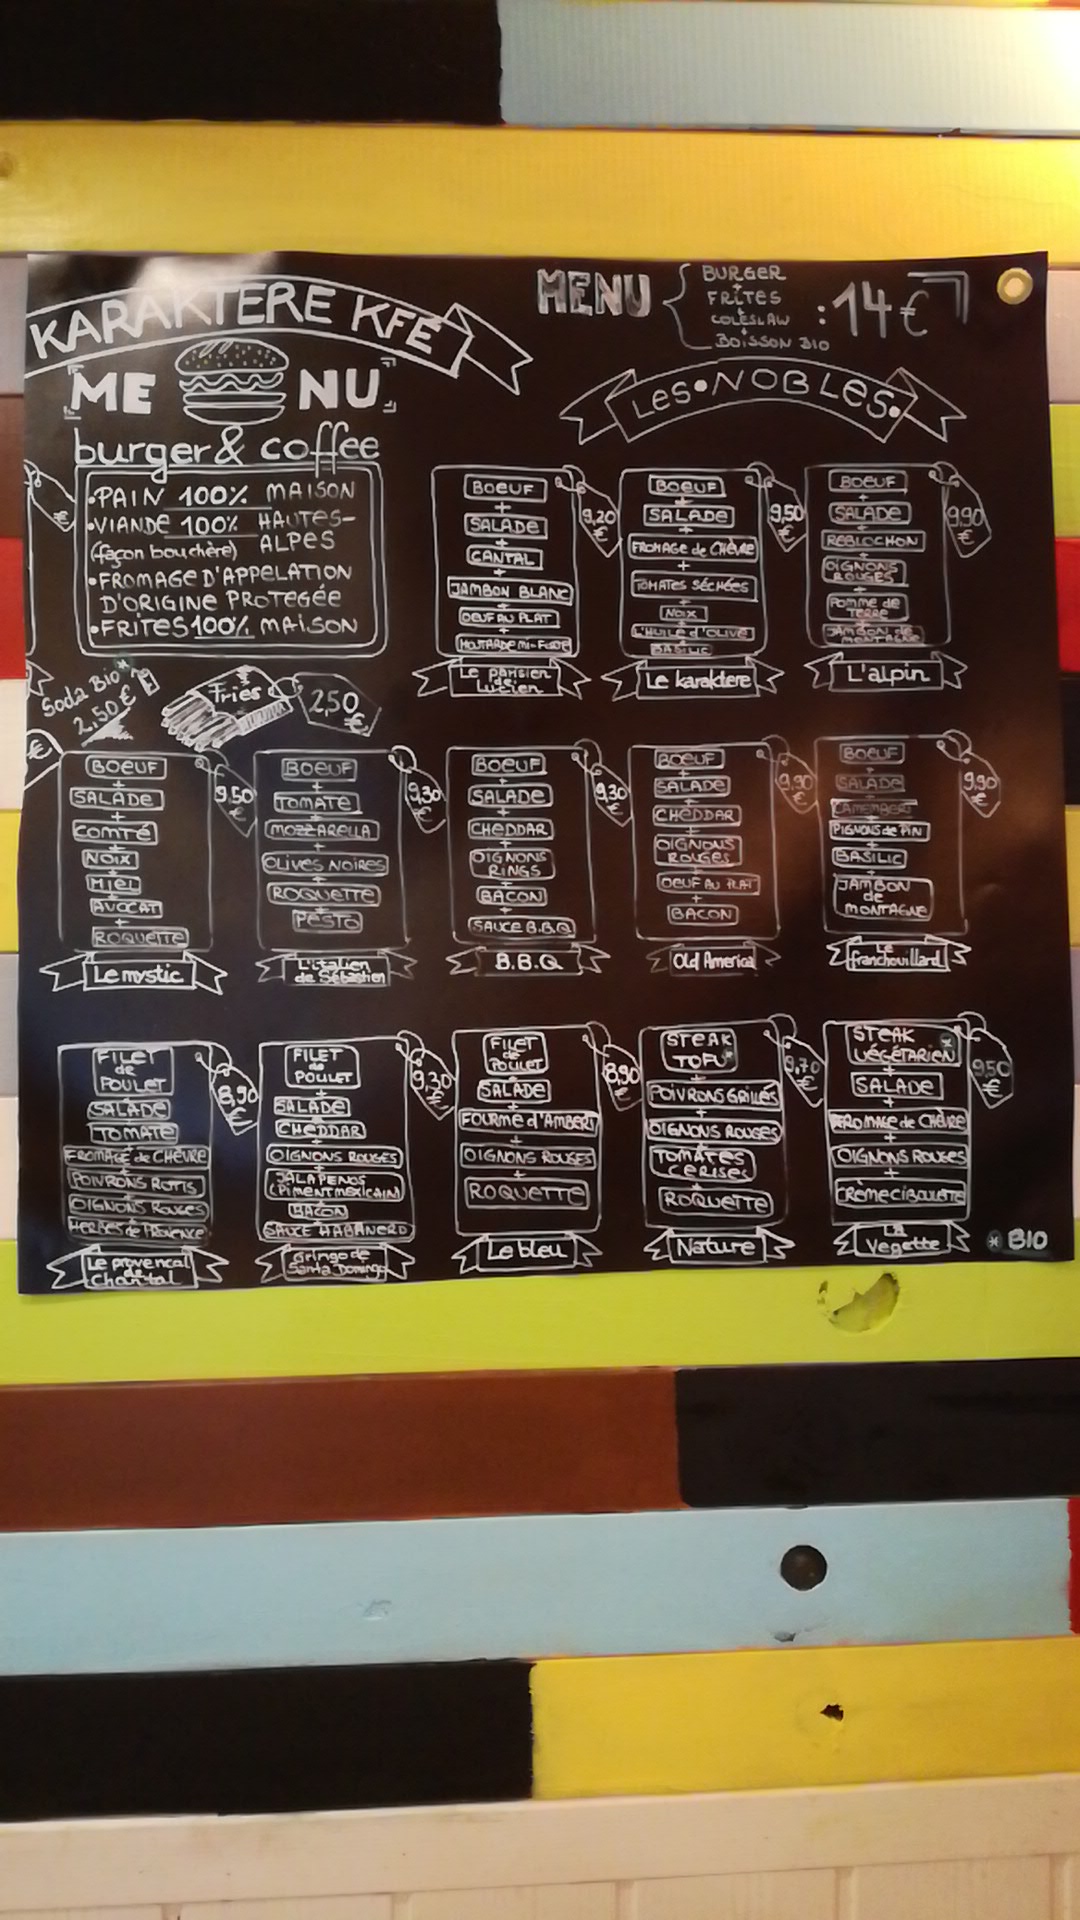 KARAKTERE KFÉ
MENU
burger & coffee
• PAIN 100% MAISON
• VIANDE 100% HAUTES-
(façon bouchère) ALPES
• FROMAGE D'APPELATION
D'ORIGINE PROTEGÉE
• FRITES 100% MAISON
Soda Bio*
2,50€
Fries
2,50
€
MENU
BURGER
+
FRITES
+
COLESLAW
+
BOISSON BIO
: 14€
LES • NOBLES •
BOEUF
+
SALADE
+
CANTAL
+
JAMBON BLANC
+
OEUF AU PLAT
+
MOUTARDE MI-FORTE
9,20
€
Le parisien
de
Lucien
BOEUF
+
SALADE
+
FROMAGE de CHÈVRE
+
TOMATES SÉCHÉES
+
NOIX
+
L'HUILE d'OLIVE
BASILIC
9,50
€
Le karaktere
BOEUF
+
SALADE
+
REBLOCHON
+
OIGNONS
ROUGES
+
POMME de
TERRE
+
JAMBON de
MONTAGNE
9,90
€
L'alpin
BOEUF
+
SALADE
+
COMTÉ
+
NOIX
+
MIEL
+
AVOCAT
+
ROQUETTE
9,50
€
Le mystic
BOEUF
+
TOMATE
+
MOZZARELLA
+
OLIVES NOIRES
+
ROQUETTE
+
PESTO
9,30
€
L'italien
de Sébastien
BOEUF
+
SALADE
+
CHEDDAR
+
OIGNONS
RINGS
+
BACON
+
SAUCE B.B.Q
9,30
€
B.B.Q
BOEUF
+
SALADE
+
CHEDDAR
+
OIGNONS
ROUGES
+
OEUF AU PLAT
+
BACON
9,90
€
Old America
BOEUF
+
SALADE
+
CAMEMBERT
+
PIGNONS de PIN
+
BASILIC
+
JAMBON
de
MONTAGNE
9,90
€
Le
franchouillard
FILET
de
POULET
+
SALADE
+
TOMATE
+
FROMAGE de CHÈVRE
POIVRONS ROTIS
+
OIGNONS ROUGES
+
HERBES de PROVENCE
8,90
€
Le provençal
de
Chantal
FILET
de
POULET
+
SALADE
+
CHEDDAR
+
OIGNONS ROUGES
+
JALAPENOS
(PIMENT MEXICAIN)
BACON
+
SAUCE HABANERO
9,30
€
Gringo de
Santa Domingo
FILET
de
POULET
+
SALADE
+
FOURME d'AMBERT
+
OIGNONS ROUGES
+
ROQUETTE
8,90
€
Le bleu
STEAK
TOFU*
+
POIVRONS GRILLÉS
+
OIGNONS ROUGES
+
TOMATES
CERISES
+
ROQUETTE
9,70
€
Nature
STEAK *
VÉGÉTARIEN
+
SALADE
+
FROMAGE de CHÈVRE
+
OIGNONS ROUGES
+
CRÈME CIBOULETTE
9,50
€
LA
Vegette
* BIO